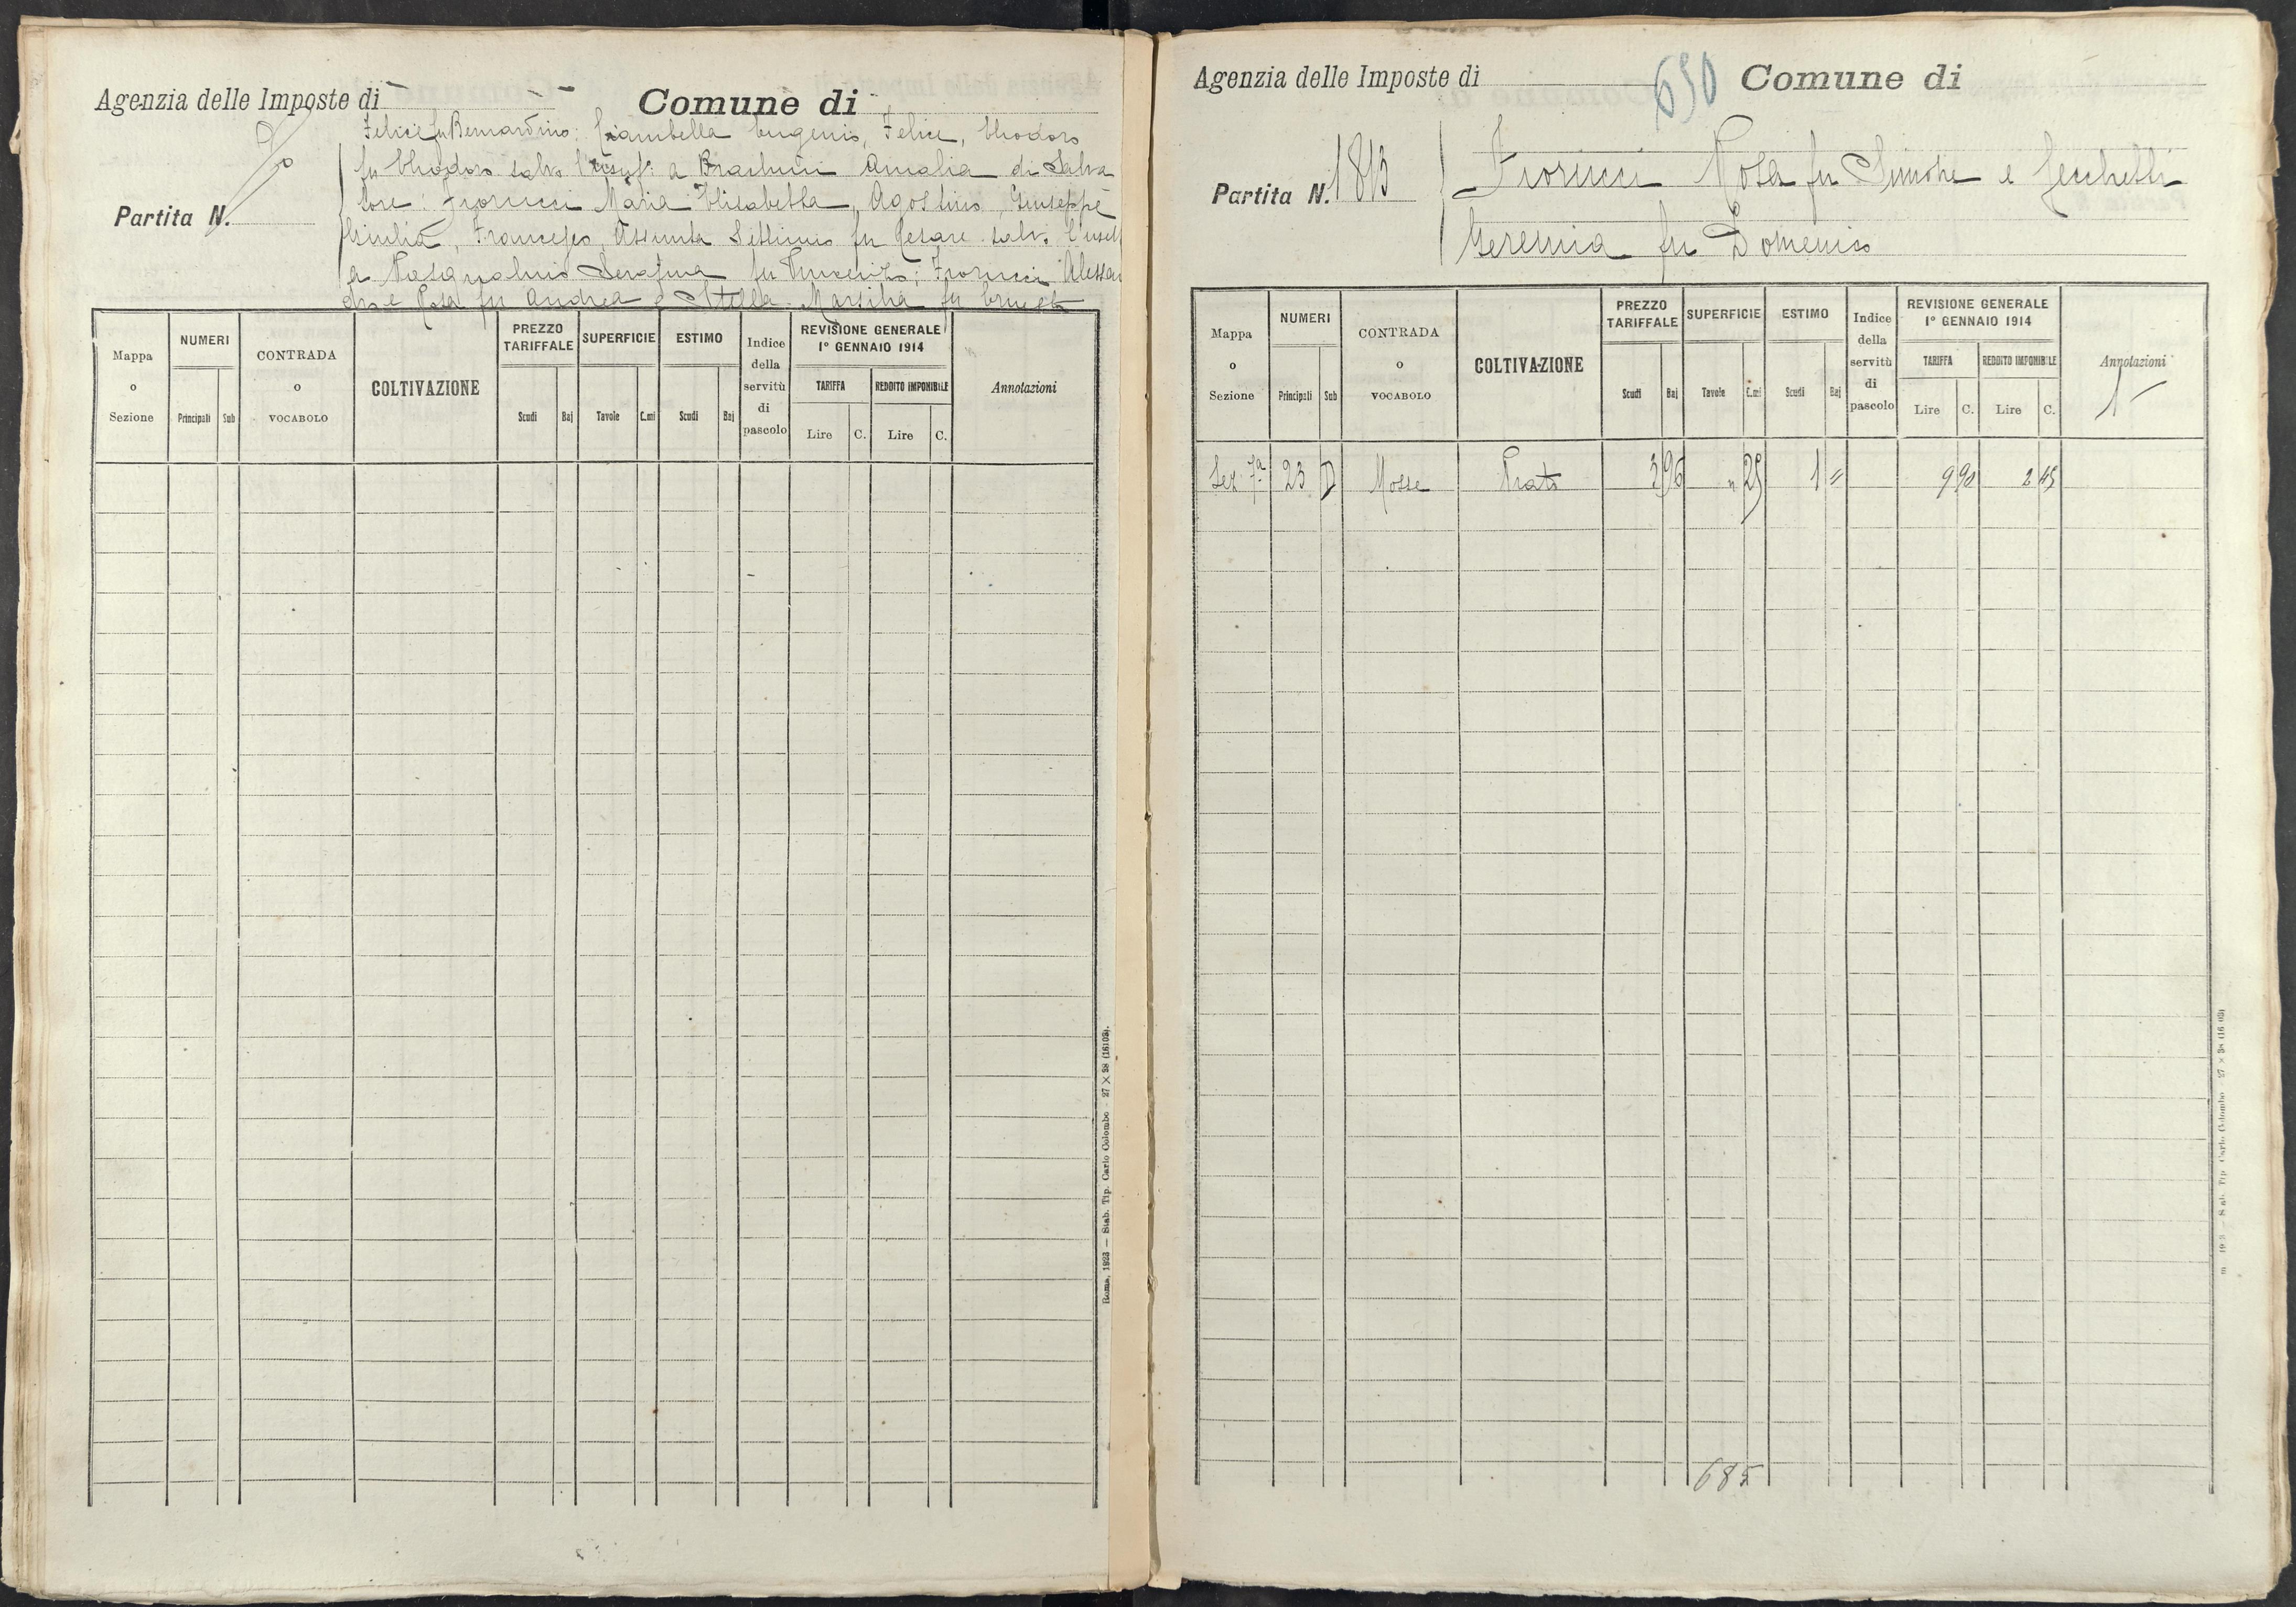 Agenzia delle Imposte di
Comune di
Felice fu Bernardino: Ciambella Eugenio, Felice, Theodoro
fu Theodoro salvo l'usuf: a Brachini Amalia di Salva
tore: Fiorucci Maria Elisabetta, Agostino, Giuseppe
Giulia, Francesco, Assunta Settimio fu Cesare salv. l'usuf
a Pasqualini Serafina fu Vincenzo; Fiorucci Alessan
dro e Rosa fu Andrea e Stella Marsilia fu Ernesto
Partita N.
Mappa o Sezione
NUMERI
Principali Sub
CONTRADA o VOCABOLO
COLTIVAZIONE
PREZZO TARIFFALE
Scudi Baj
SUPERFICIE
Tavole C.mi
ESTIMO
Scudi Baj
Indice della servitù di pascolo
REVISIONE GENERALE
1° GENNAIO 1914
TARIFFA
Lire C.
REDDITO IMPONIBILE
Lire C.
Annotazioni
Roma, 1923 — Stab. Tip. Carlo Colombo - 27 × 38 (16103).
Agenzia delle Imposte di
650
Comune di
Partita N. 1813
Fiorucci Rosa fu Simone e Cecchetti
Geremia fu Domenico
Mappa o Sezione
NUMERI
Principali Sub
CONTRADA o VOCABOLO
COLTIVAZIONE
PREZZO TARIFFALE
Scudi Baj
SUPERFICIE
Tavole C.mi
ESTIMO
Scudi Baj
Indice della servitù di pascolo
REVISIONE GENERALE
1° GENNAIO 1914
TARIFFA
Lire C.
REDDITO IMPONIBILE
Lire C.
Annotazioni
Sez. 7ª 23 D Mosse Prato 3 96 " 25 1 " 9 90 2 45
685